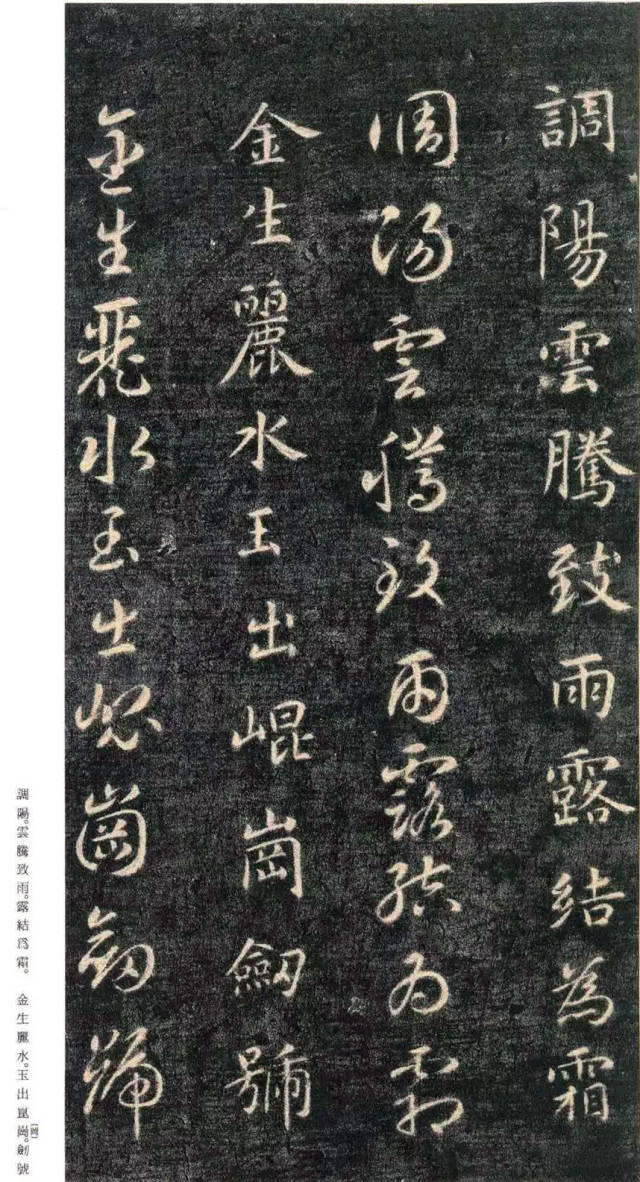 調陽雲騰致雨露結為霜
調陽雲騰致雨露結為霜
金生麗水玉出崐崗劒號
金生麗水玉出崐崗劒號
調陽。雲騰致雨。露結爲霜。 金生麗水。玉出崑崗。[岡]劍號